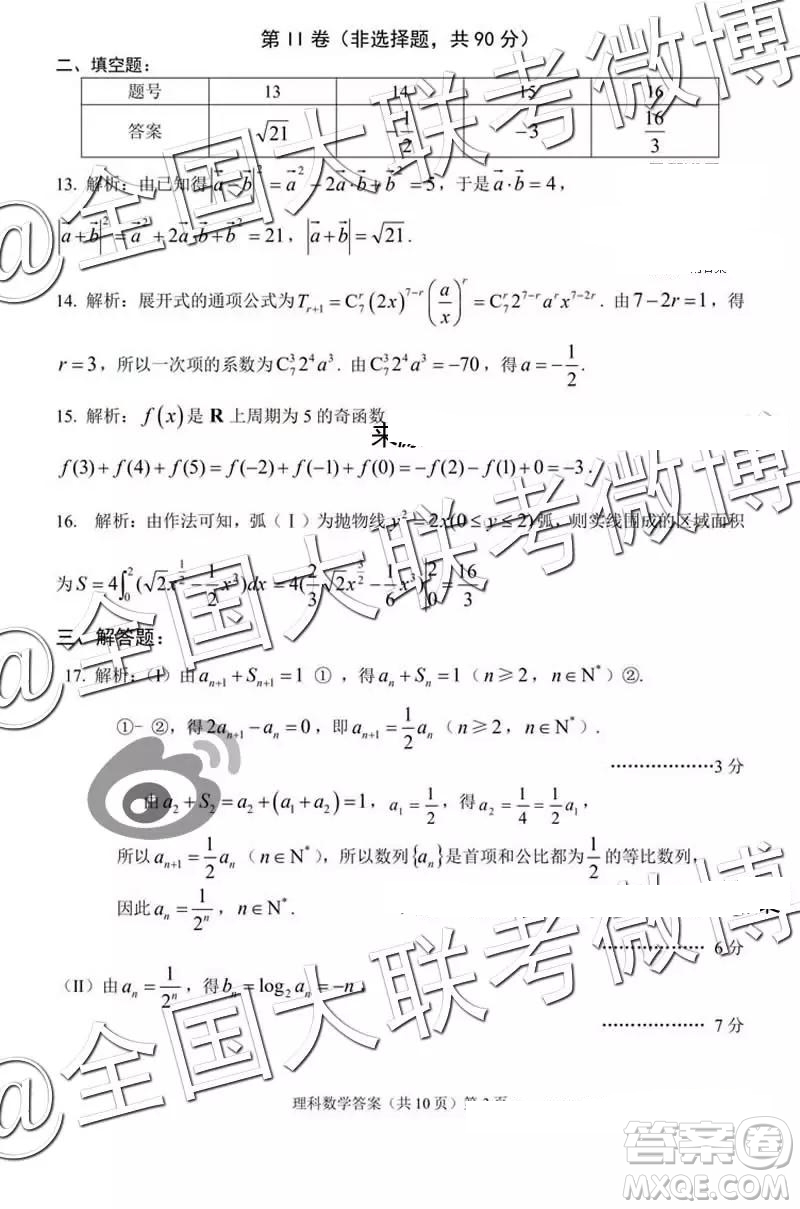 第 II 卷（非选择题，共 90 分）
二、填空题：
题号 13 14 15 16
答案 √21 -1/2 -3 16/3
13. 解析：由已知得|a-b|² = a² - 2a·b + b² = 5，于是 a·b = 4，
|a+b|² = a² + 2a·b + b² = 21，|a+b| = √21．
14. 解析：展开式的通项公式为 T_{r+1} = C_7^r (2x)^{7-r} (a/x)^r = C_7^r 2^{7-r} a^r x^{7-2r}．由 7-2r=1，得
r=3，所以一次项的系数为 C_7^3 2^4 a^3．由 C_7^3 2^4 a^3 = -70，得 a = -1/2．
15. 解析：f(x) 是 R 上周期为 5 的奇函数
f(3)+f(4)+f(5)=f(-2)+f(-1)+f(0)=-f(2)-f(1)+0=-3．
16. 解析：由作法可知，弧（Ⅰ）为抛物线 y²=2x(0≤y≤2)弧，则实线围成的区域面积
为 S=4∫_0^2(√2x^{1/2} - 1/2 x²)dx = 4(2/3 √2x^{3/2} - 1/6 x³)|_0^2 = 16/3
三、解答题：
17. 解析：(I) 由 a_{n+1}+S_{n+1}=1 ①，得 a_n+S_n=1（n≥2，n∈N*）②．
①- ②，得 2a_{n+1}-a_n=0，即 a_{n+1}=1/2 a_n（n≥2，n∈N*）．
…………………3 分
由 a_2+S_2=a_2+(a_1+a_2)=1，a_1=1/2，得 a_2=1/4=1/2 a_1，
所以 a_{n+1}=1/2 a_n（n∈N*），所以数列{a_n}是首项和公比都为 1/2 的等比数列，
因此 a_n=1/2^n，n∈N*．
………………… 6 分
（II）由 a_n=1/2^n，得 b_n=log_2 a_n=-n，
………………… 7 分
理科数学答案（共 10 页）第
@全国大联考微博
@全国大联考微博
@全国大联考微博
答案圈
MXQE.COM